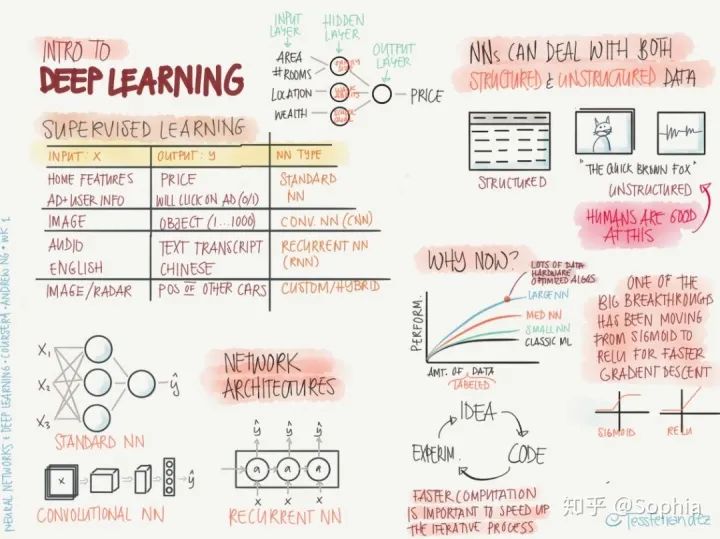 INTRO TO
DEEP LEARNING
INPUT LAYER
HIDDEN LAYER
OUTPUT LAYER
AREA
#ROOMS
LOCATION
WEALTH
PRICE
SUPERVISED LEARNING
INPUT: X OUTPUT: y NN TYPE
HOME FEATURES PRICE STANDARD
AD+USER INFO WILL CLICK ON AD (0/1) NN
IMAGE OBJECT (1...1000) CONV. NN (CNN)
AUDIO TEXT TRANSCRIPT RECURRENT NN
ENGLISH CHINESE (RNN)
IMAGE/RADAR POS OF OTHER CARS CUSTOM/HYBRID
NNs CAN DEAL WITH BOTH
STRUCTURED & UNSTRUCTURED DATA
STRUCTURED
"THE QUICK BROWN FOX"
UNSTRUCTURED
HUMANS ARE GOOD
AT THIS
WHY NOW?
LOTS OF DATA
HARDWARE
OPTIMIZED ALGOS
LARGE NN
MED NN
SMALL NN
CLASSIC ML
PERFORM.
AMT. OF DATA
LABELED
ONE OF THE
BIG BREAKTHROUGHS
HAS BEEN MOVING
FROM SIGMOID TO
RELU FOR FASTER
GRADIENT DESCENT
SIGMOID
RELU
IDEA
CODE
EXPERIM.
FASTER COMPUTATION
IS IMPORTANT TO SPEED UP
THE ITERATIVE PROCESS
NETWORK
ARCHITECTURES
X1
X2
X3
ŷ
STANDARD NN
X
ŷ
CONVOLUTIONAL NN
ŷ ŷ ŷ
a a a
x x x
RECURRENT NN
NEURAL NETWORKS & DEEP LEARNING · COURSERA · ANDREW NG · WK 1
知乎 @Sophia